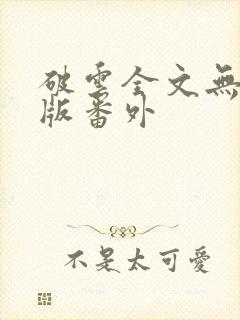 破雲全文無
版番外
不是太可愛